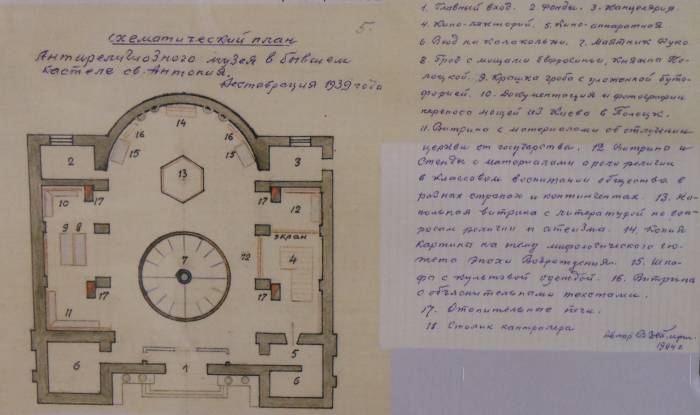 5.
Схематический план
Антирелигиозного музея в бывшем
костеле св. Антония.
Реставрация 1939 года
14
16
16
15
15
2
3
13
17
17
10
12
9 8
экран
7
4
17
17
11
5
6
1
6
1. Главный вход. 2 Фонды. 3. Канцелярия.
4. Кино-лекторий. 5. Кино-аппаратная
6. Вход на колокольни. 7. Маятник Фуко.
8. Гроб с мощами Евфросиньи, Княжны По-
лоцкой. 9. Крышка гроба с уложенной буто-
форией. 10. Документация и фотографии
переноса мощей из Киева в Полоцк.
11. Витрина с материалами об отлучении
церкви от государства. 12 Витрина и
Стенды с материалами о роли религии
в классовом воспитании общества в
разных странах и континентах. 13. На-
польная витрина с литературой по воп-
росам религии и атеизма. 14. Копия
Картина на тему мифологического сю-
жета Эпохи Возрождения. 15. Шка-
фа с культовой одеждой. 16. Витрина
с объяснительными текстами.
17. Отопительные печи.
18 Столик контролера
Автор
1994 г.